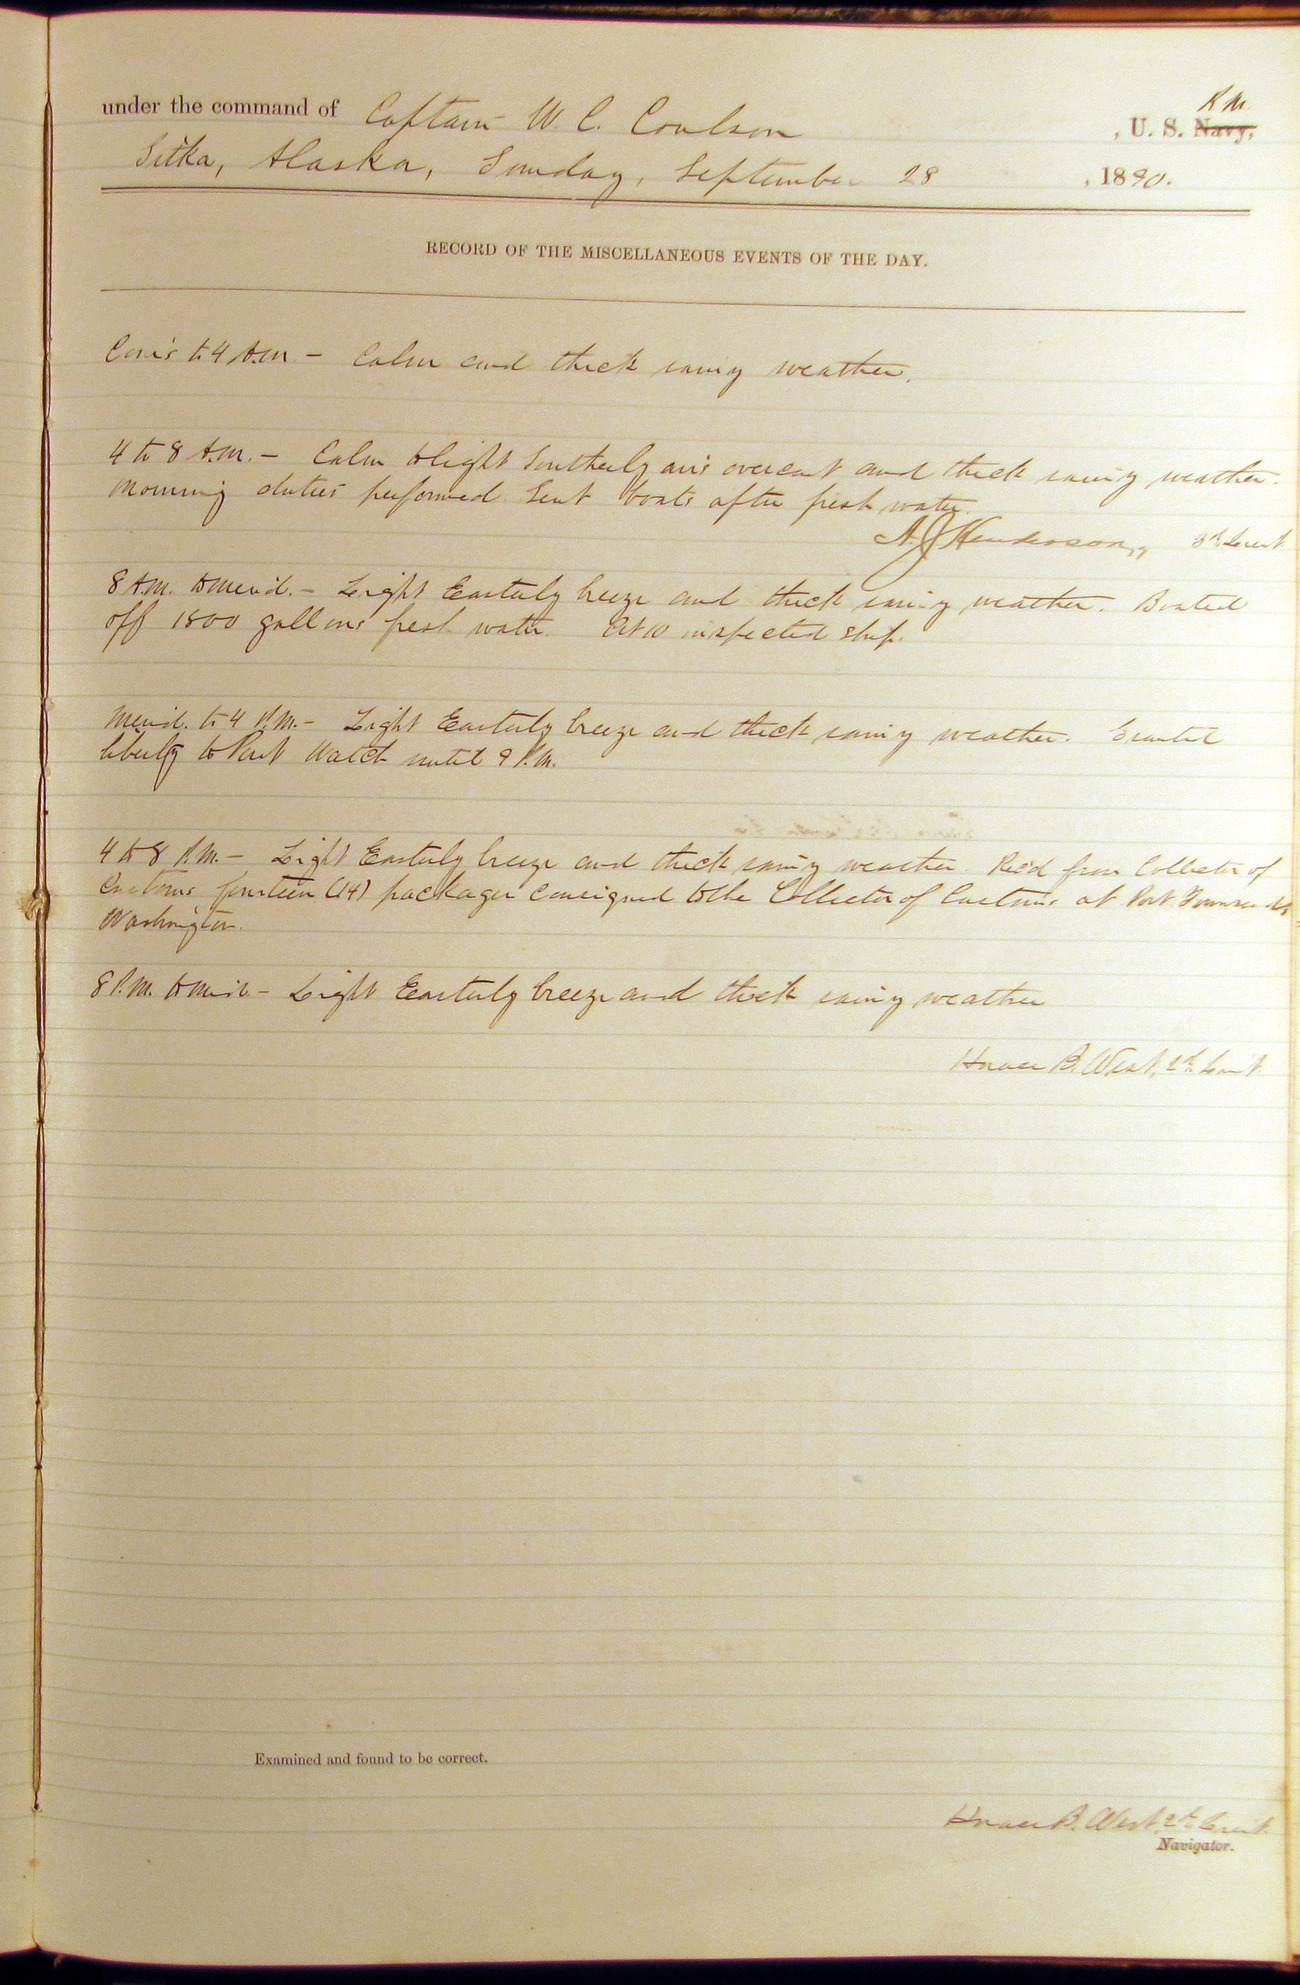 under the command of Captain W. C. Coulson , U. S. Navy, R M
Sitka, Alaska, Sunday, September 28 , 1890.
RECORD OF THE MISCELLANEOUS EVENTS OF THE DAY.
Com's to 4 A.M. – Calm and thick rainy weather.
4 to 8 A.M. – Calm to light Southerly airs overcast and thick rainy weather.
Morning duties performed. Sent boats after fresh water.
A. J. Henderson, 3d Lieut
8 A.M. to Merid. – Light Easterly breeze and thick rainy weather. Boated
off 1800 gallons fresh water. At 10 inspected ship.
Merid. to 4 P.M. – Light Easterly breeze and thick rainy weather. Granted
liberty to Port Watch until 9 P.M.
4 to 8 P.M. – Light Easterly breeze and thick rainy weather. Rec'd from Collector of
Customs fourteen (14) packages consigned to the Collector of Customs at Port Townsend
Washington.
8 P.M. to Mid. – Light Easterly breeze and thick rainy weather
Horace B. West, 2d Lieut.
Examined and found to be correct.
Horace B. West, 2d Lieut.
Navigator.